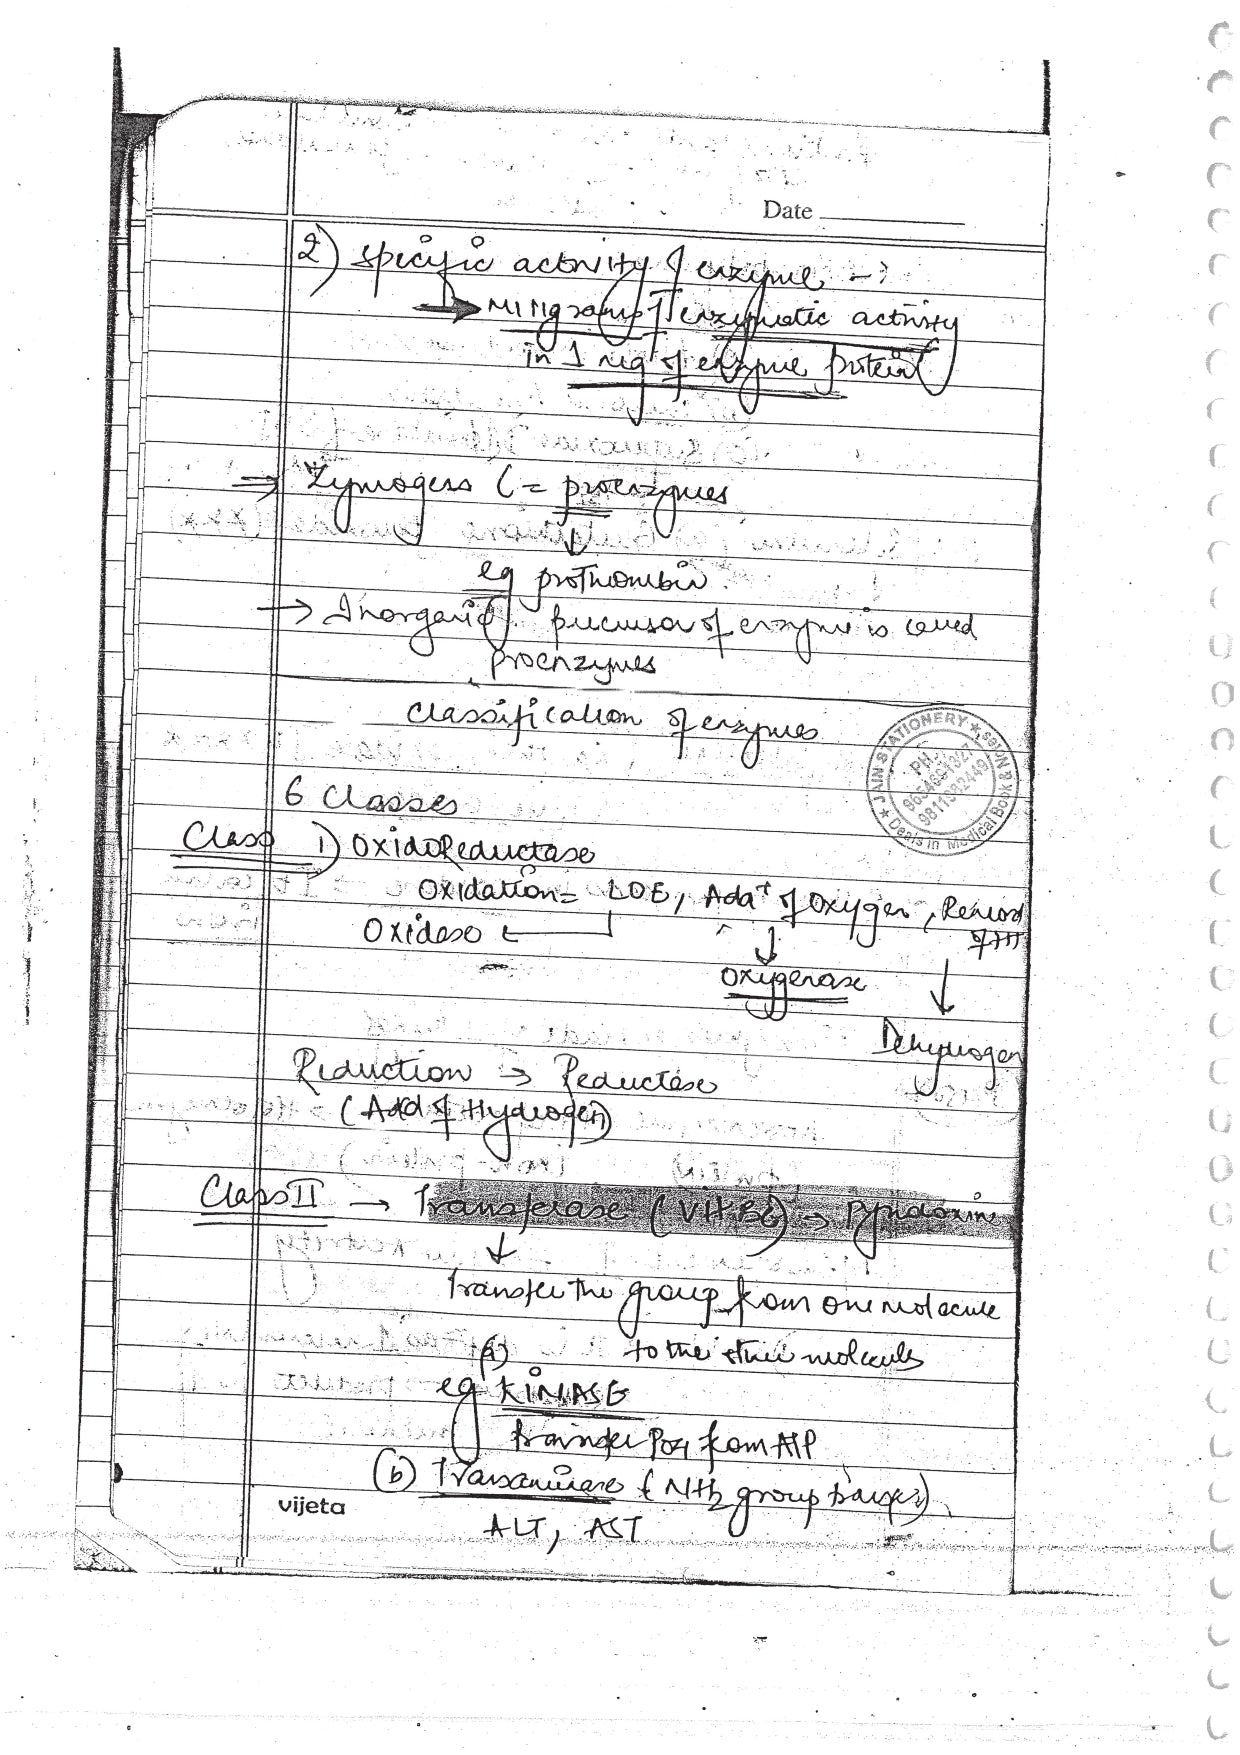 Date
2) specific activity of enzyme →
→ Milligrams of enzymatic activity
in 1 mg of enzyme protein
⇒ Zymogens (= proenzymes
↓
eg prothrombin
→ Inorganic precursor of enzyme is called
proenzymes
Classification of enzymes
JAIN STATIONERY
Deals in Medical Book & Notes
PH.
9811382449
6 Classes
Class 1) OxidoReductase
Oxidation = LOE, Addⁿ of Oxygen, Removal of H
Oxidase ←
↓
Oxygenase
↓
Dehydrogen
Reduction → Reductase
(Add of Hydrogen)
Class II → Transferase (Vit B6) → Pyridoxine
↓
Transfer the group from one molecule
to the other molecules
(a)
eg KINASE
transfer PO4 from ATP
(b) Transaminase (NH2 group transfer)
vijeta
ALT, AST